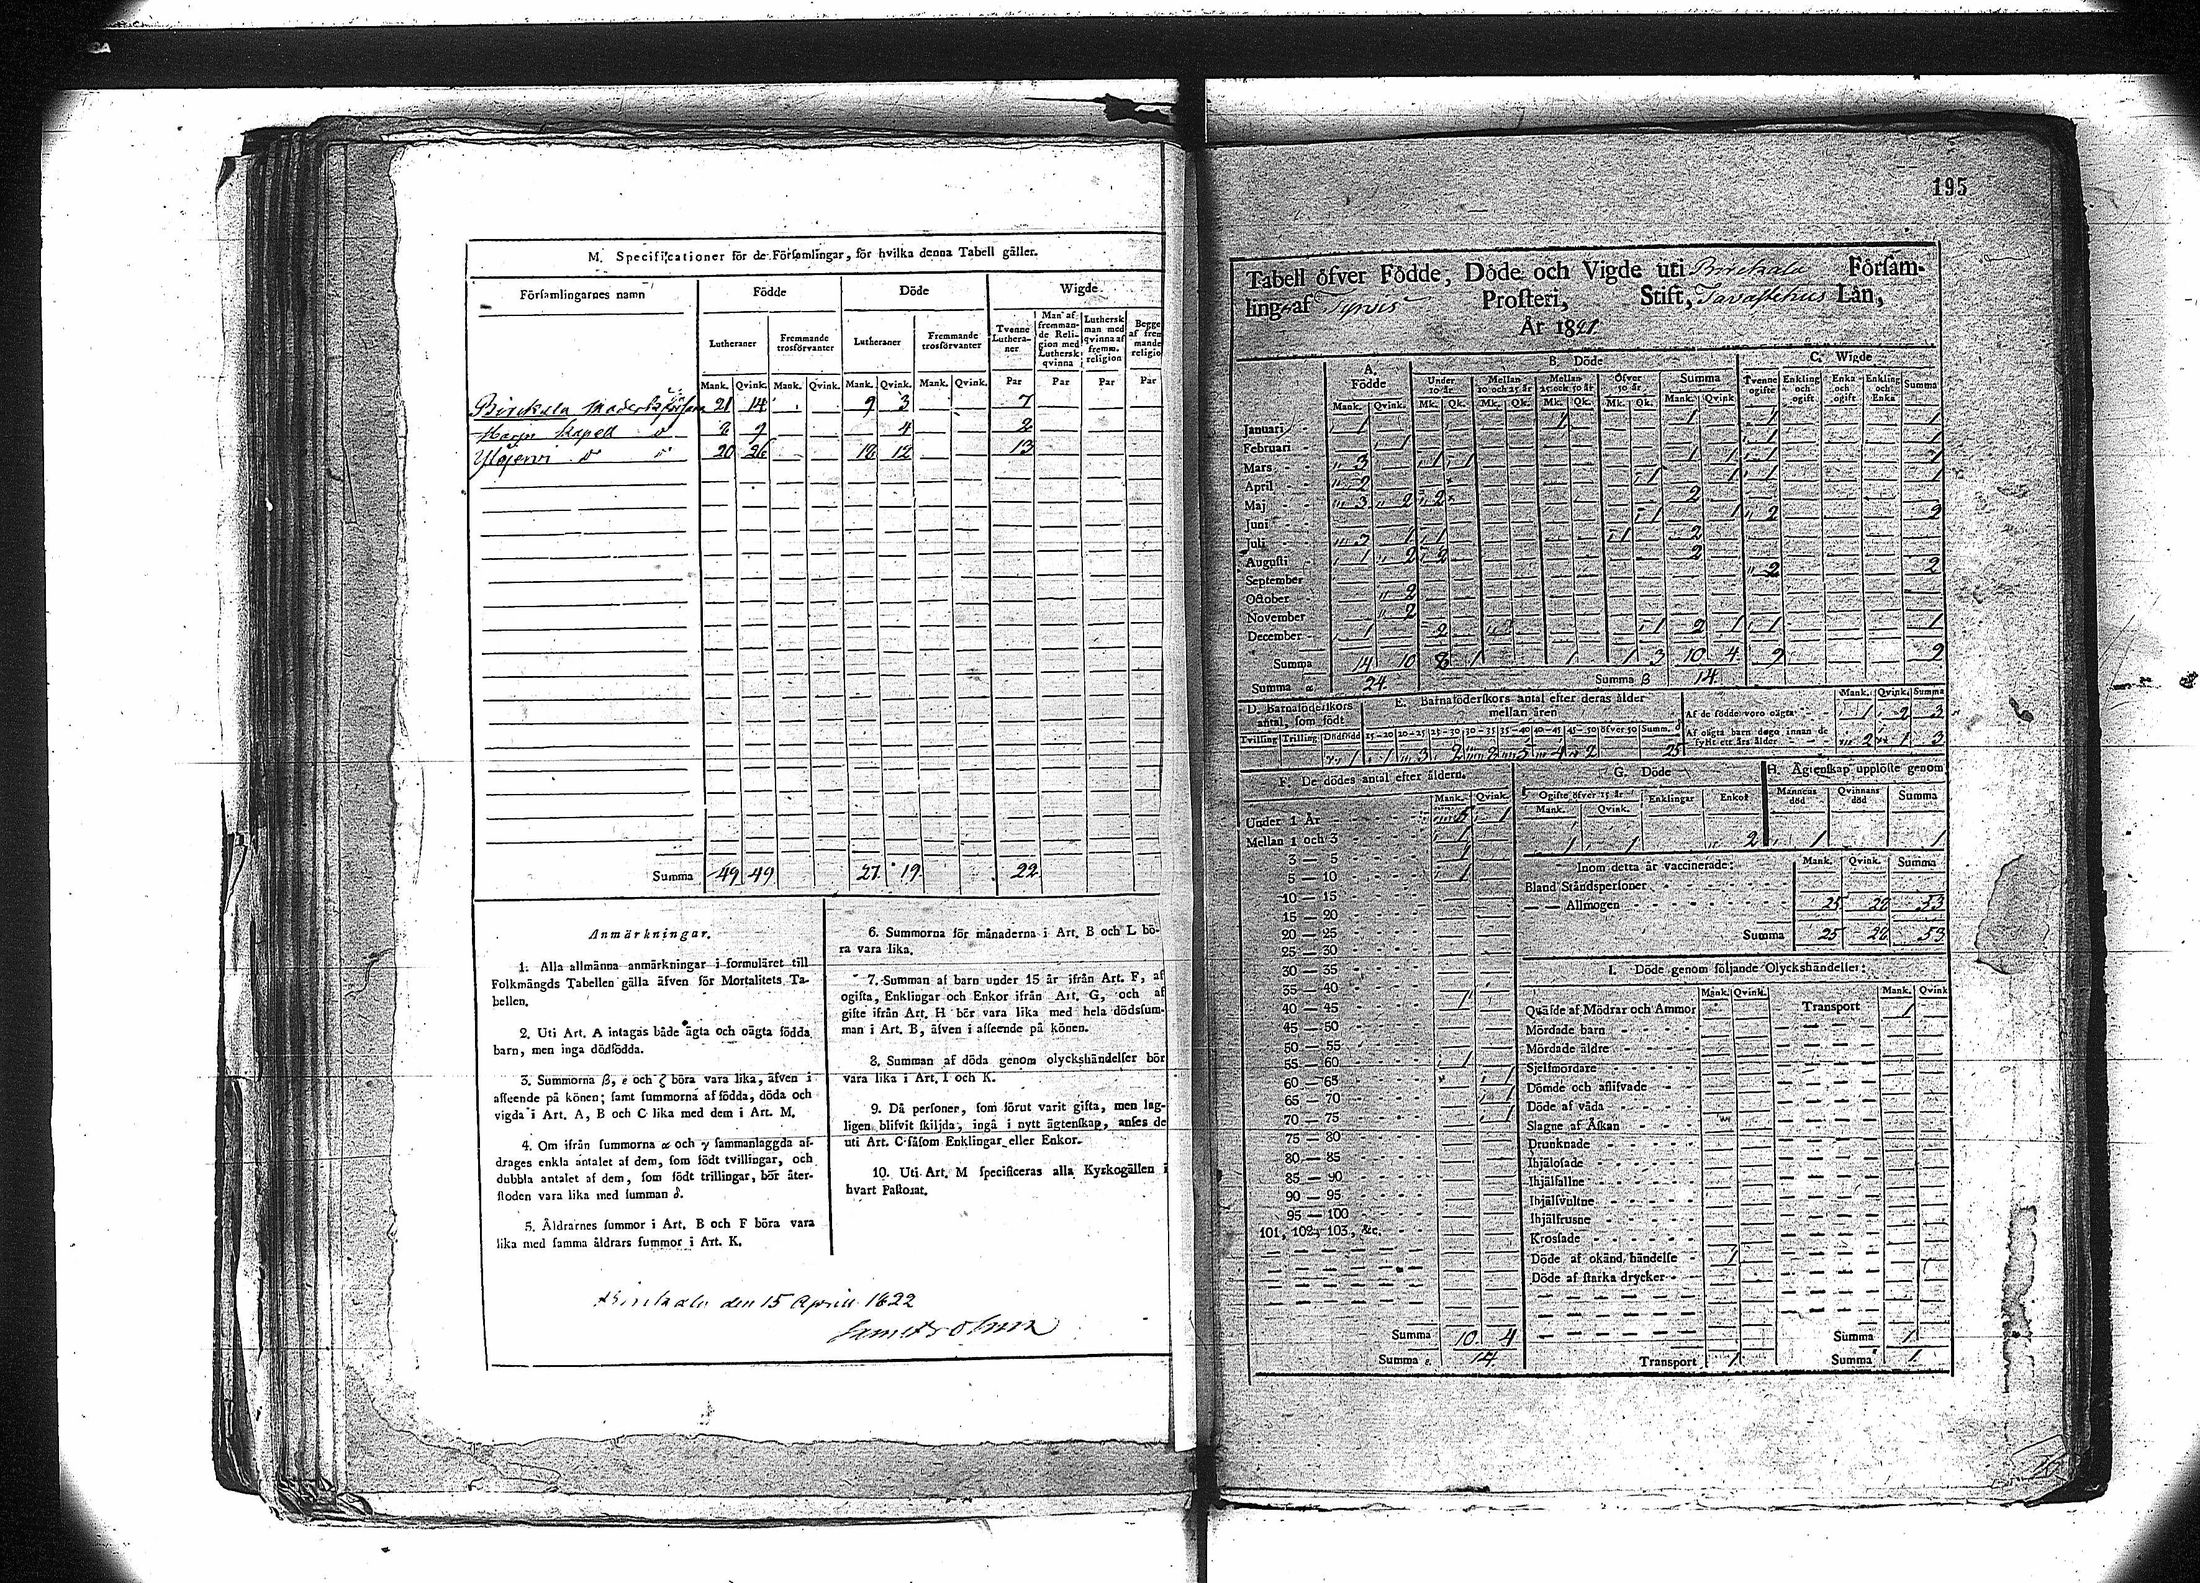 195
M. Specificationer för de Församlingar, för hvilka denna Tabell gäller.
Församlingarnes namn Födde Döde Wigde
Lutheraner Fremmande trosförvanter Lutheraner Fremmande trosförvanter Tvenne Lutheraner Man af fremmande Religion med Luthersk qvinna Luthersk man med qvinna af fremm. religion Begge af fremmande religio
Mank. Qvink. Mank. Qvink. Mank. Qvink. Mank. Qvink. Par Par Par Par
Birckala 21 14 9 3 7
Kapell 9 4 2
Ylöjervi 20 26 18 12 13
Summa 49 49 27 19 22
Anmärkningar.
1. Alla allmänna anmärkningar i formuläret till
Folkmängds Tabellen gälla äfven för Mortalitets Ta-
bellen.
2. Uti Art. A intagas både ägta och oägta födda
barn, men inga dödfödda.
3. Summorna β, ε och ζ böra vara lika, äfven i
afseende på könen; samt summorna af födda, döda och
vigda i Art. A, B och C lika med dem i Art. M.
4. Om ifrån summorna α och γ sammanlaggda af-
drages enkla antalet af dem, som födt tvillingar, och
dubbla antalet af dem, som födt trillingar, bör åter-
stoden vara lika med summan δ.
5. Åldrarnes summor i Art. B och F böra vara
lika med samma åldrars summor i Art. K.
6. Summorna för månaderna i Art. B och L bö-
ra vara lika.
7. Summan af barn under 15 år ifrån Art. F, af
ogifta, Enklingar och Enkor ifrån Art. G, och af
gifte ifrån Art. H bör vara lika med hela dödssum-
man i Art. B, äfven i afseende på könen.
8. Summan af döda genom olyckshändelser bör
vara lika i Art. I och K.
9. Då personer, som förut varit gifta, men lag-
ligen blifvit skiljda, ingå i nytt ägtenskap, anses de
uti Art. C såsom Enklingar eller Enkor.
10. Uti Art. M specificeras alla Kyrkogällen i
hvart Pastorat.
Birckala den 15 April 1822
Tabell öfver Födde, Döde och Vigde uti Birckala Försam-
ling af Tyrvis Prosteri, Stift, Tavastehus Län,
År 1821
A. Födde B. Döde C. Wigde
Under 10 år Mellan 10 och 25 år Mellan 25 och 50 år Öfver 50 år Summa Tvenne ogifte Enkling och ogift Enka och ogift Enkling och Enka Summa
Mank. Qvink. Mk. Qk. Mk. Qk. Mk. Qk. Mk. Qk. Mank. Qvink
Januari 1 1 1 1 1
Februari 1 1 1
Mars 3 1 1 1 1 1 1
April 2 1 1 1 1
Maj 3 2 2 2
Juni 1 1 2 2
Juli 3 1 1 1 2
Augusti 1 2 2 2
September 2 2
October 2
November 2
December 1 2 1 2 1 1 1
Summa 14 10 8 1 1 1 3 10 4 9 9
Summa α 24 Summa β 14
D. Barnaföderskors antal, som födt
E. Barnaföderskors antal efter deras ålder mellan åren
Mank. Qvink. Summa
Af de födde voro oägta 1 2 3
Af oägta barn dogo innan de fyllt ett års ålder 2 1 3
Tvilling Trilling Dödfödd 15-20 20-25 25-30 30-35 35-40 40-45 45-50 öfver 50 Summ. δ
1 1 3 2 8 5 4 2 25
F. De dödes antal efter åldern. G. Döde H. Ägtenskap upplöste genom
Mank. Qvink. Ogifte öfver 15 år Enklingar Enkor Mannens död Qvinnans död Summa
Mank. Qvink.
1 1 2 1 1
Under 1 År 5 1
Mellan 1 och 3 1
3 — 5 1
5 — 10 1
10 — 15
15 — 20
20 — 25
25 — 30
30 — 35
35 — 40
40 — 45 1
45 — 50
50 — 55
55 — 60 1
60 — 65 1
65 — 70 1
70 — 75 1
75 — 80
80 — 85
85 — 90
90 — 95
95 — 100
101, 102, 103, &c.
Summa 10 4
Summa ε. 14
Inom detta år vaccinerade: Mank. Qvink. Summa
Bland Ståndspersoner
— — Allmogen 25 28 53
Summa 25 28 53
I. Döde genom följande Olyckshändelser:
Mank. Qvink. Mank. Qvink
Qväfde af Mödrar och Ammor Transport 1
Mördade barn
Mördade äldre
Sjelfmördare
Dömde och aflifvade
Döde af våda
Slagne af Åskan
Drunknade
Ihjälosade
Ihjälfallne
Ihjälsvultne
Ihjälfrusne
Krossade
Döde af okänd händelse 1
Döde af starka drycker
Summa 1
Transport 1 Summa 1